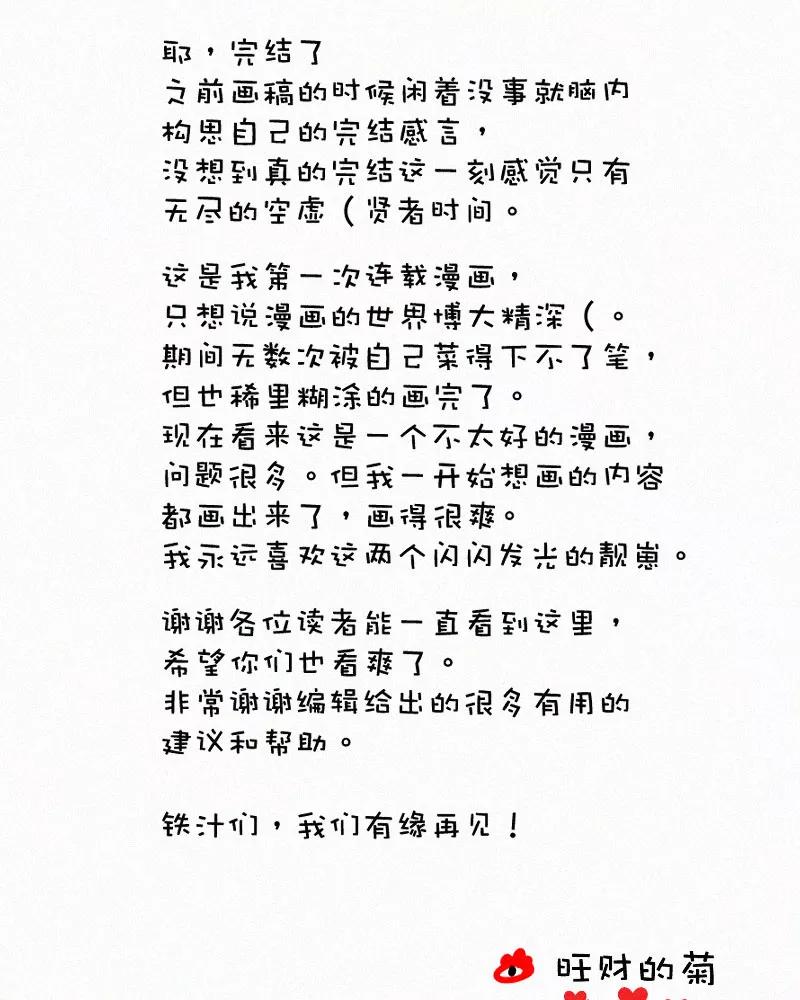 耶，完结了
之前画稿的时候闲着没事就脑内
构思自己的完结感言，
没想到真的完结这一刻感觉只有
无尽的空虚（贤者时间。
这是我第一次连载漫画，
只想说漫画的世界博大精深（。
期间无数次被自己菜得下不了笔，
但也稀里糊涂的画完了。
现在看来这是一个不太好的漫画，
问题很多。但我一开始想画的内容
都画出来了，画得很爽。
我永远喜欢这两个闪闪发光的靓崽。
谢谢各位读者能一直看到这里，
希望你们也看爽了。
非常谢谢编辑给出的很多有用的
建议和帮助。
铁汁们，我们有缘再见！
旺财的菊